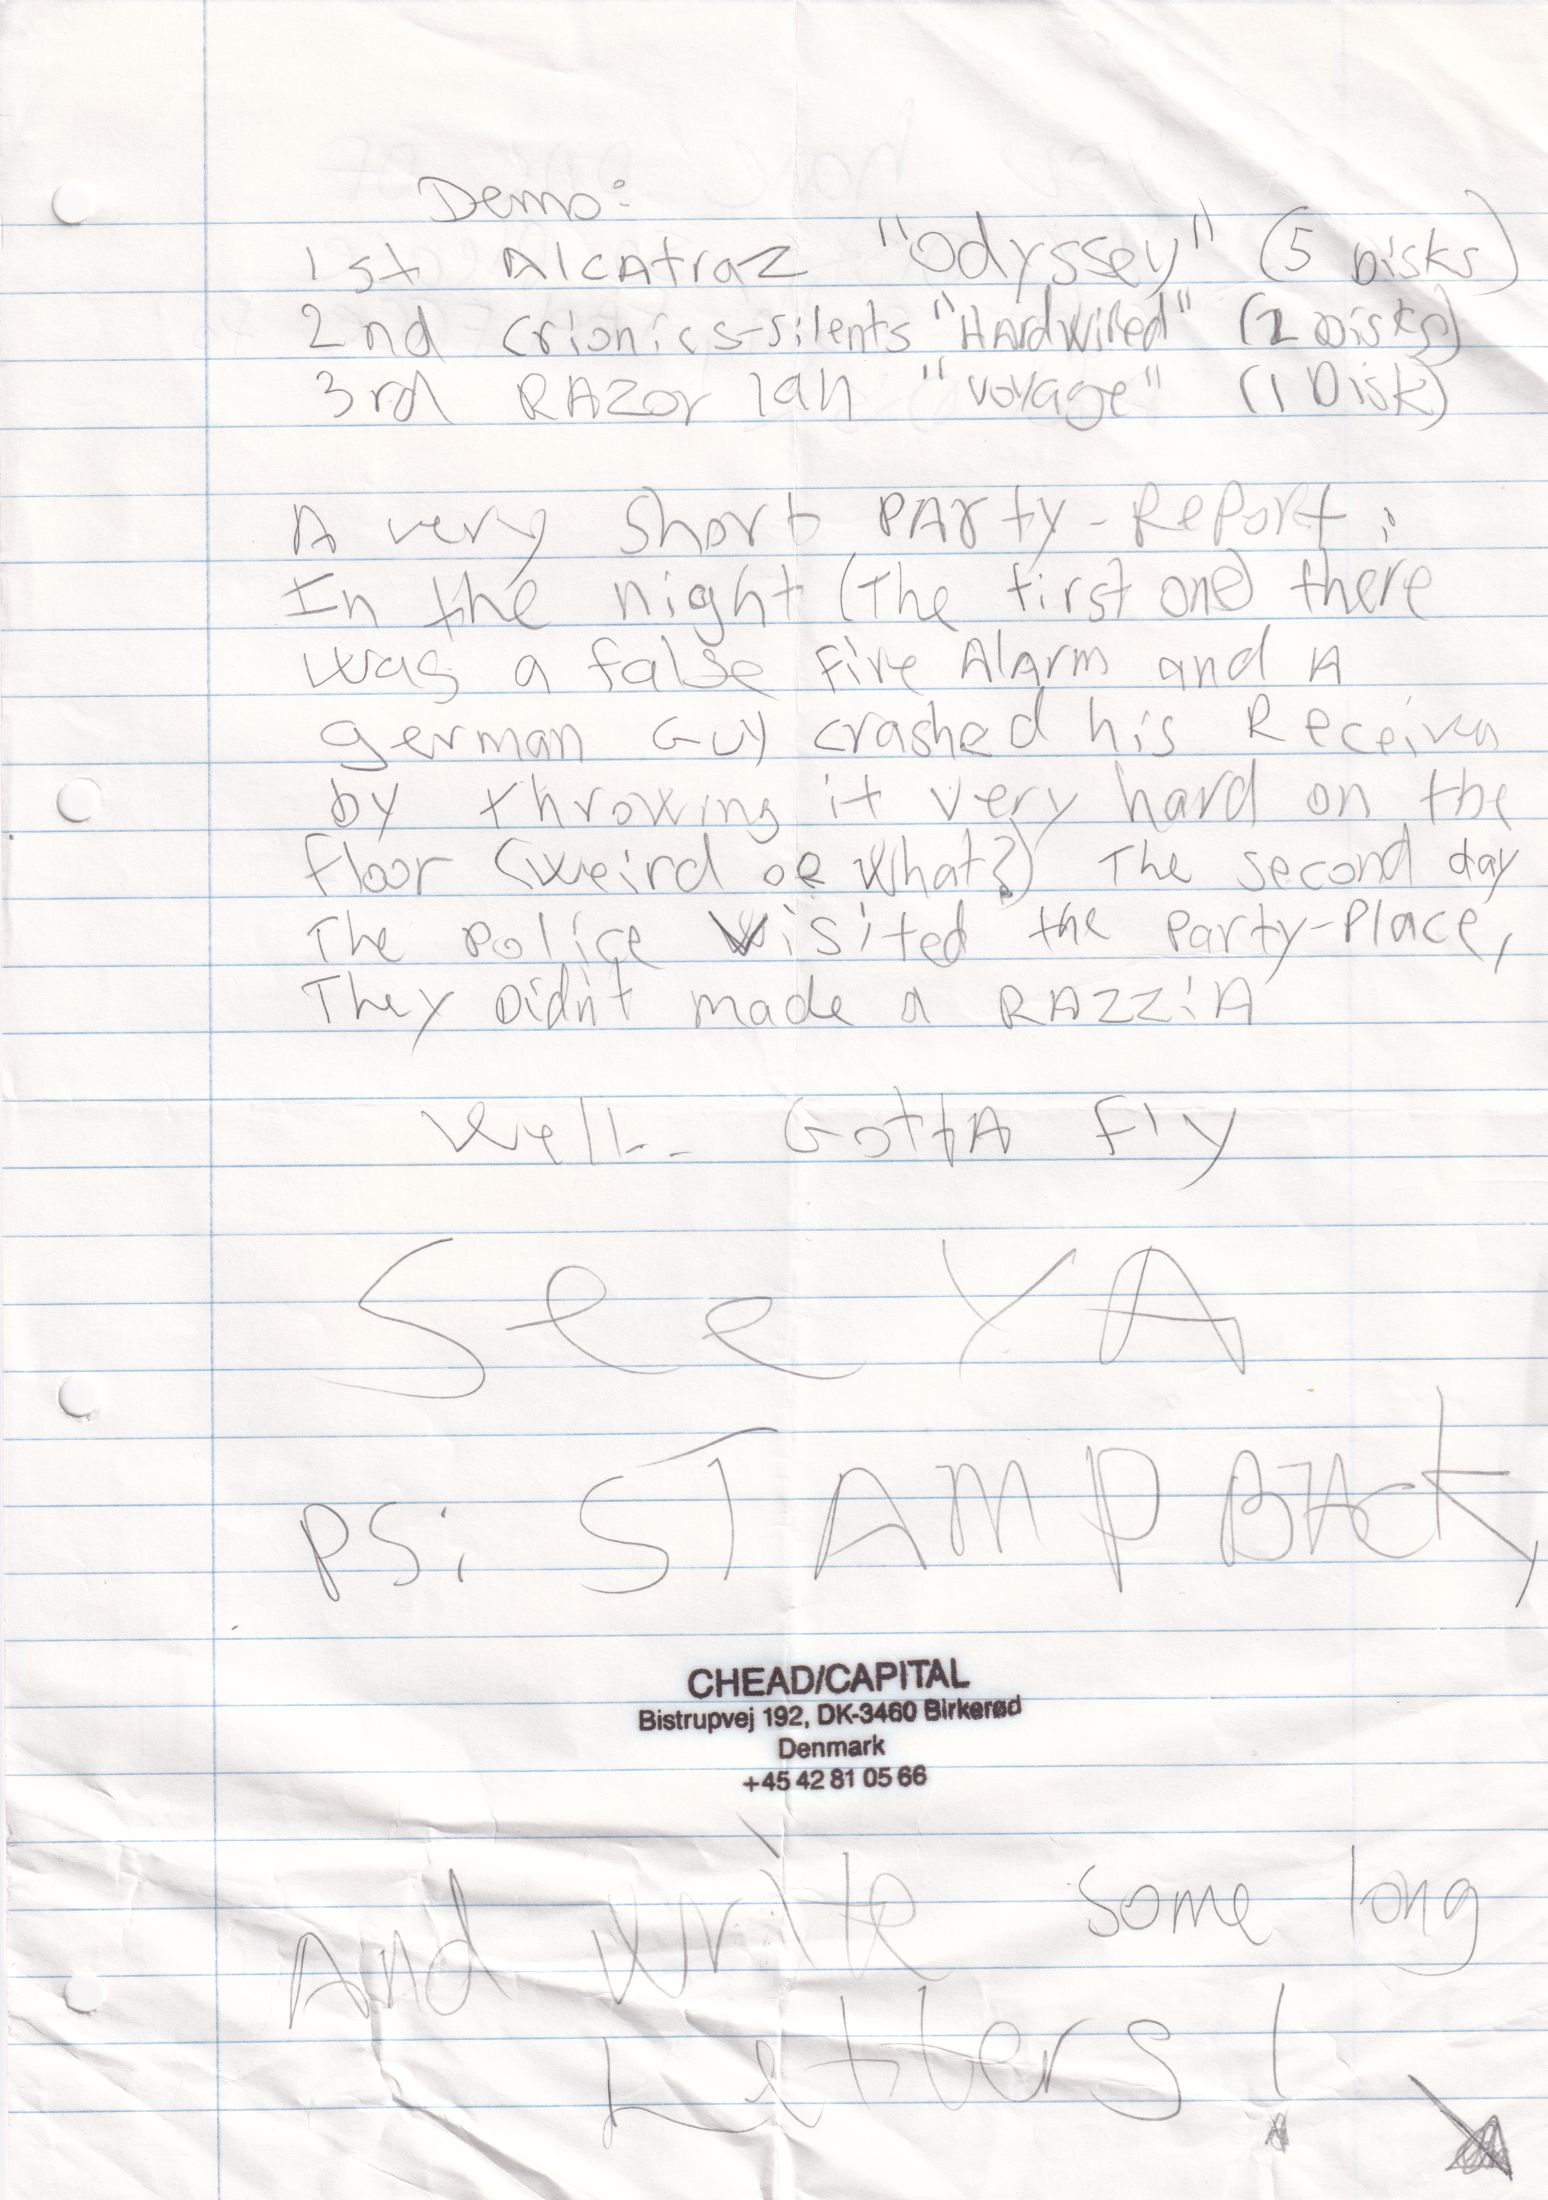 Demo:
1st Alcatraz "Odyssey" (5 Disks)
2nd Crionics-Silents "Hardwired" (2 Disks)
3rd RAZor 1911 "Voyage" (1 Disk)
A very short PArty-Report:
In the night (The first one) there
was a false Fire AlArm and A
german Guy crashed his Receiver
by throwing it very hard on the
floor (weird oR what?) The second day
The police visited the Party-Place,
They Didn't made a RAZZiA
Well.. GottA Fly
See YA
PS: STAMP BACK,
CHEAD/CAPITAL
Bistrupvej 192, DK-3460 Birkerød
Denmark
+45 42 81 05 66
And write some long
Letters!